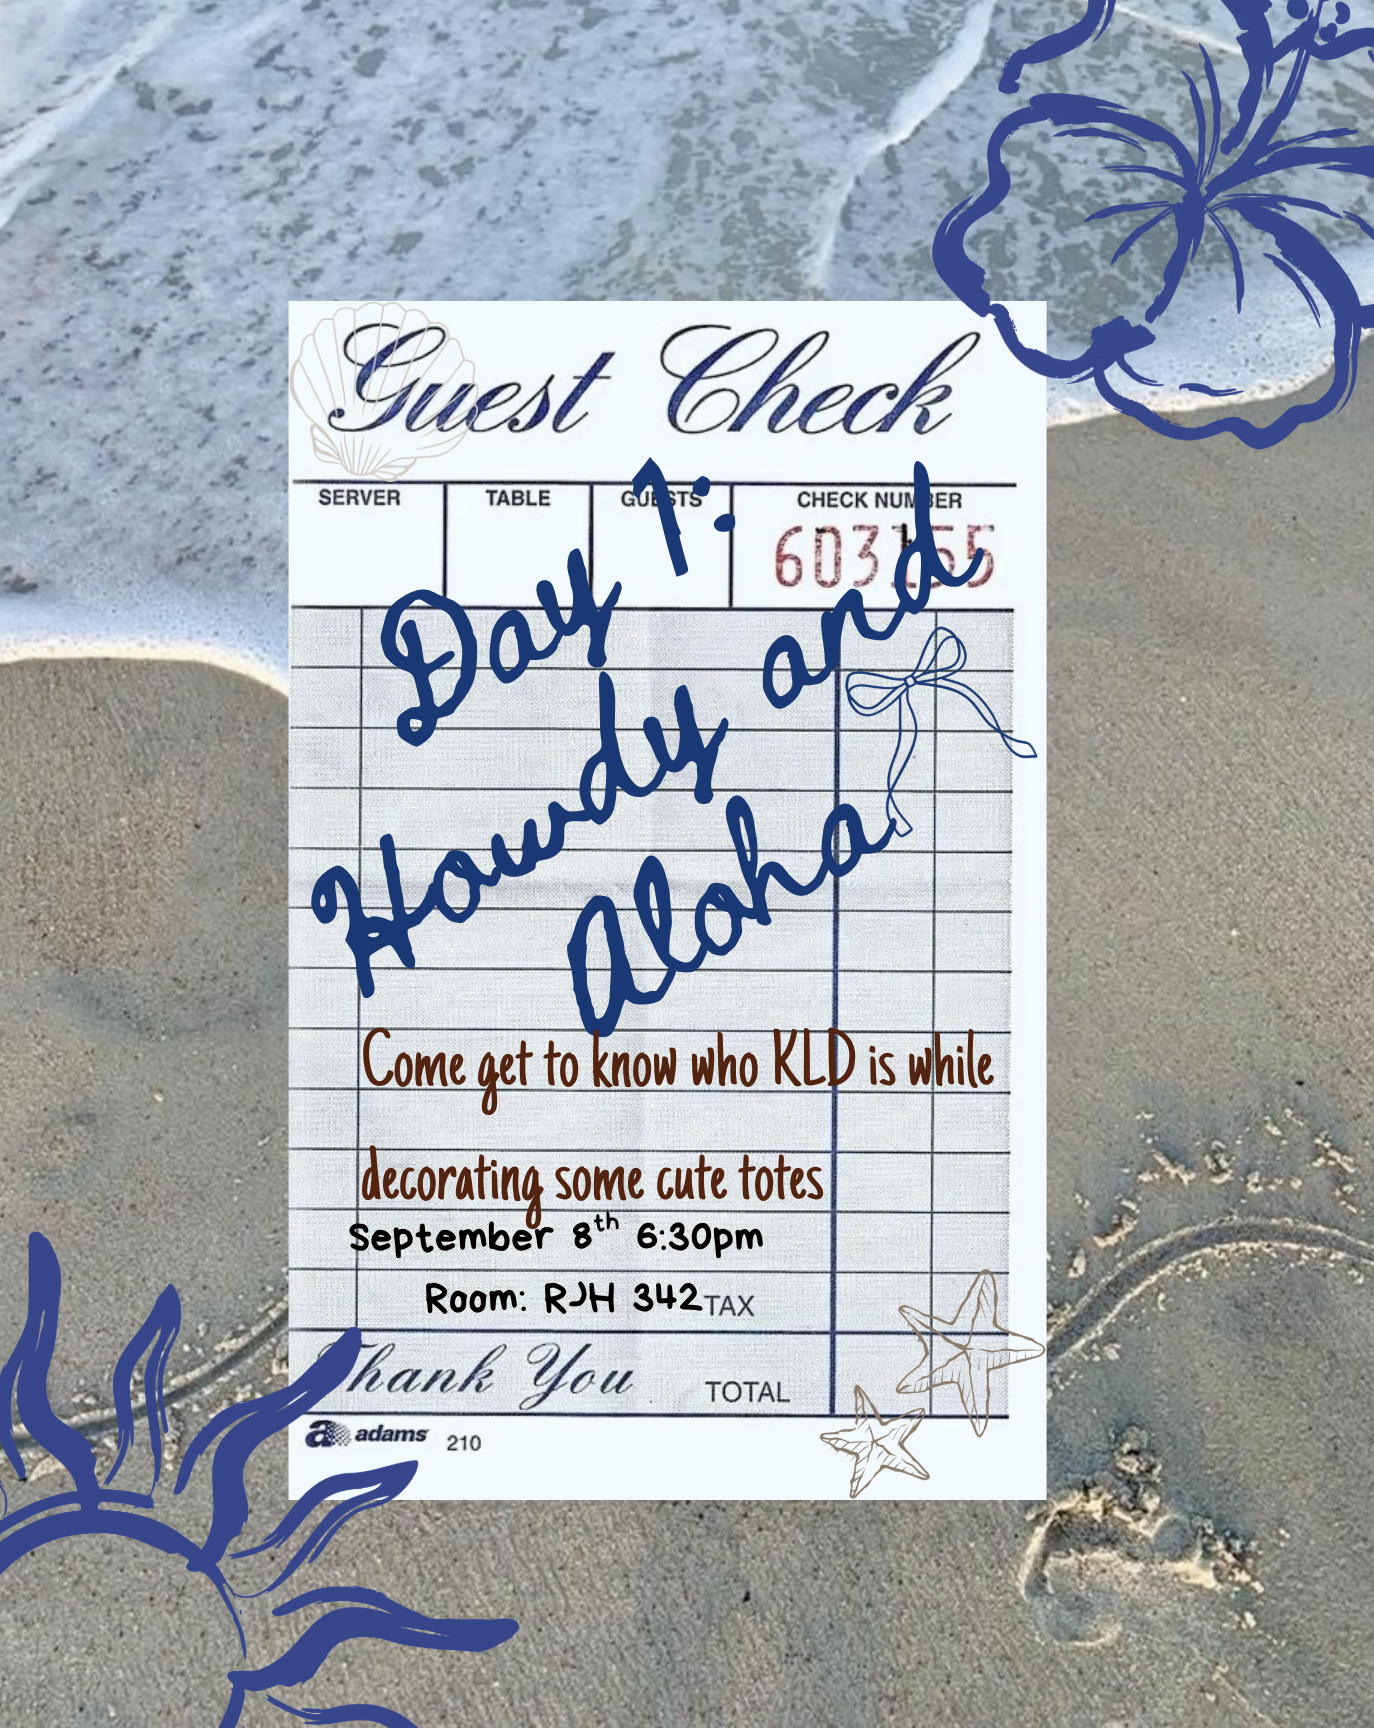 Guest Check
SERVER TABLE GUESTS CHECK NUMBER
603155
Day 1:
Howdy and
Aloha
Come get to know who KLD is while
decorating some cute totes
September 8th 6:30pm
Room: RJH 342 TAX
Thank You TOTAL
adams 210